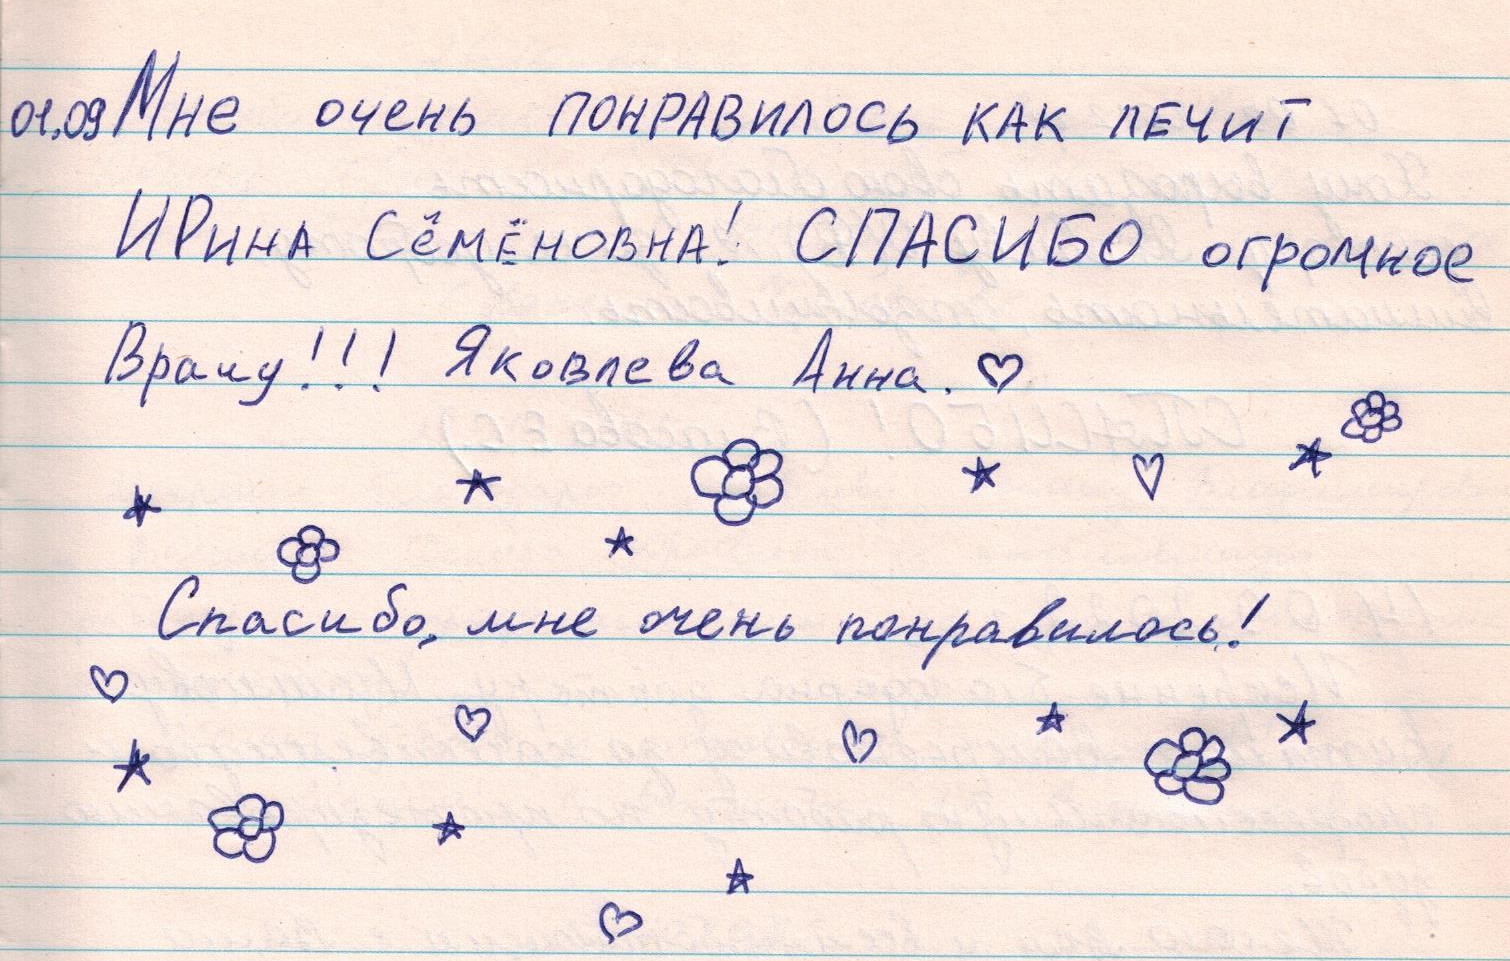 01.09 Мне очень ПОНРАВИЛОСЬ КАК ЛЕЧИТ
ИРИНА СЁМЁНОВНА! СПАСИБО огромное
Врачу!!! Яковлева Анна.
Спасибо, мне очень понравилось!